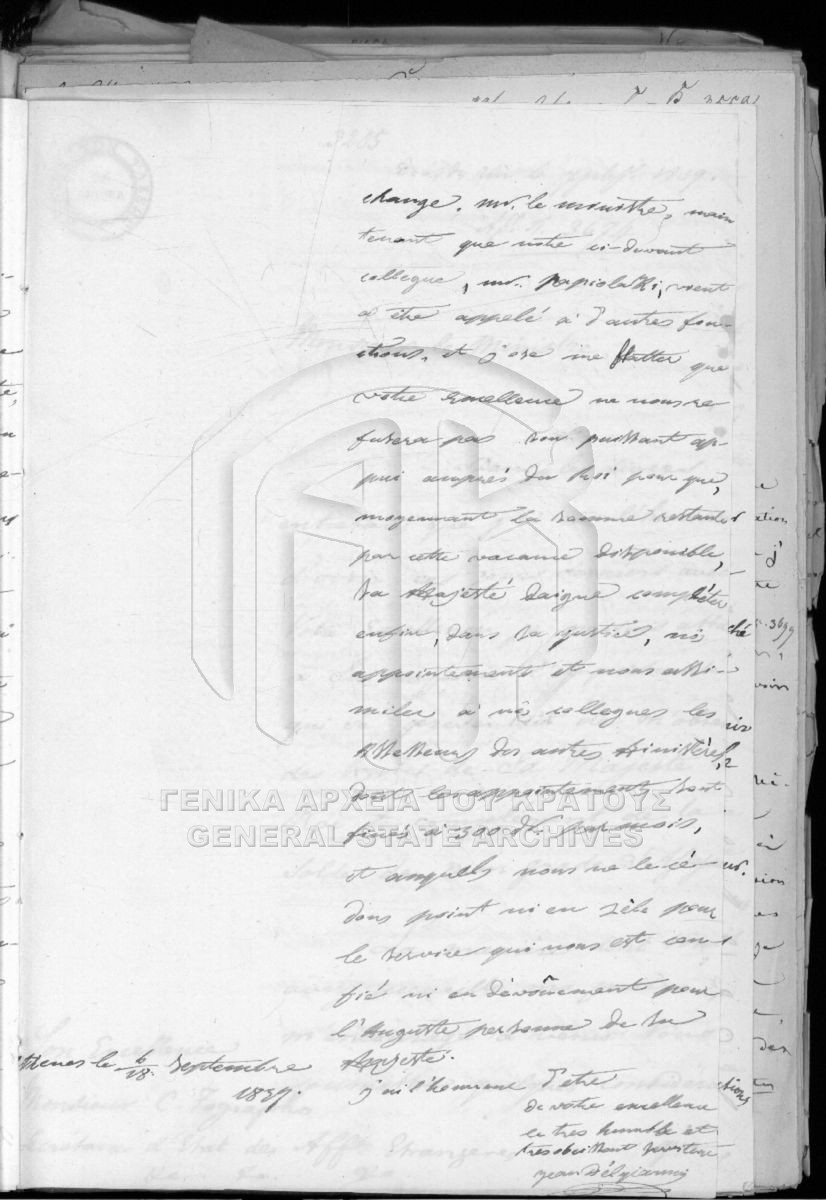 change. mr. le ministre, main
tenant que notre ci-devant
collegue, mr. papiolakki, vient
d'être appelé à d'autres fon-
ctions, et j'ose me flatter que
votre excellence ne nous re
fusera pas son puissant ap-
pui auprès du Roi pour que,
moyennant la somme restante
par cette vacance disponible,
Sa Majesté daigne compléter
enfin, dans sa justice, nos
appointements et nous assi-
miler à nos collegues les
des autres Ministères,
dont les appointements sont
fixés à 300 dr. par mois,
et auxquels nous ne le cé-
dons point ni en zèle pour
le service qui nous est con-
fié ni en dévoûement pour
l'Auguste personne de Sa
Majesté.
Athenes le 6/18. Septembre
1839.
j'ai l'honneur d'etre
de votre excellence
le tres humble et
tres obeissant serviteur
jean Délyianni
ΓΕΝΙΚΑ ΑΡΧΕΙΑ ΤΟΥ ΚΡΑΤΟΥΣ
GENERAL STATE ARCHIVES